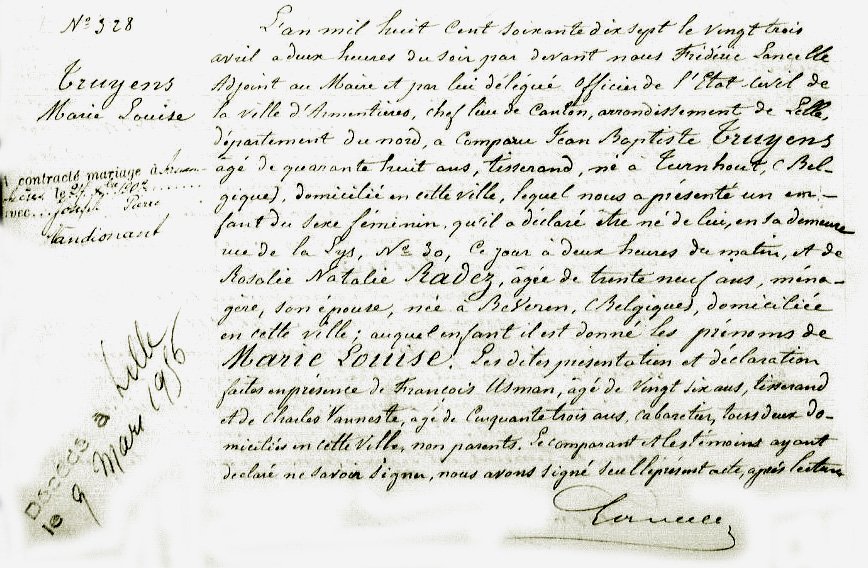 N.º 328
Truyens
Marie Louise
a contracté mariage à
le
avec Joseph Pierre
Vandionant
Décédée à Lille
le 9 Mars 1956
L'an mil huit cent soixante dix sept le vingt trois
avril a deux heures du soir par devant nous Frédéric Lancelle
Adjoint au Maire et par lui délégué officier de l'Etat Civil de
la ville d'Armentières, chef lieu de Canton, arrondissement de Lille,
département du nord, a Comparu Jean Baptiste Truyens
âgé de quarante huit ans, tisserand, né à Turnhout, (Bel-
gique), domicilié en cette ville, lequel nous a présenté un en-
fant du sexe féminin, qu'il a déclaré être né de lui, en sa demeure
rue de la Lys, N.º 30, ce jour à deux heures du matin, et de
Rosalie Natalie Radez, âgée de trente neuf ans, ména-
gère, son épouse, née à Beveren, (Belgique), domiciliée
en cette ville; auquel enfant il est donné les prénoms de
Marie Louise. Les dites présentation et déclaration
faites en présence de François Usman, âgé de vingt six ans, tisserand
et de Charles Vanneste, âgé de Cinquante trois ans, cabaretier, tous deux do-
miciliés en cette Ville, non parents. Le comparant et les témoins ayant
déclaré ne savoir signer, nous avons signé seul le présent acte, après lecture